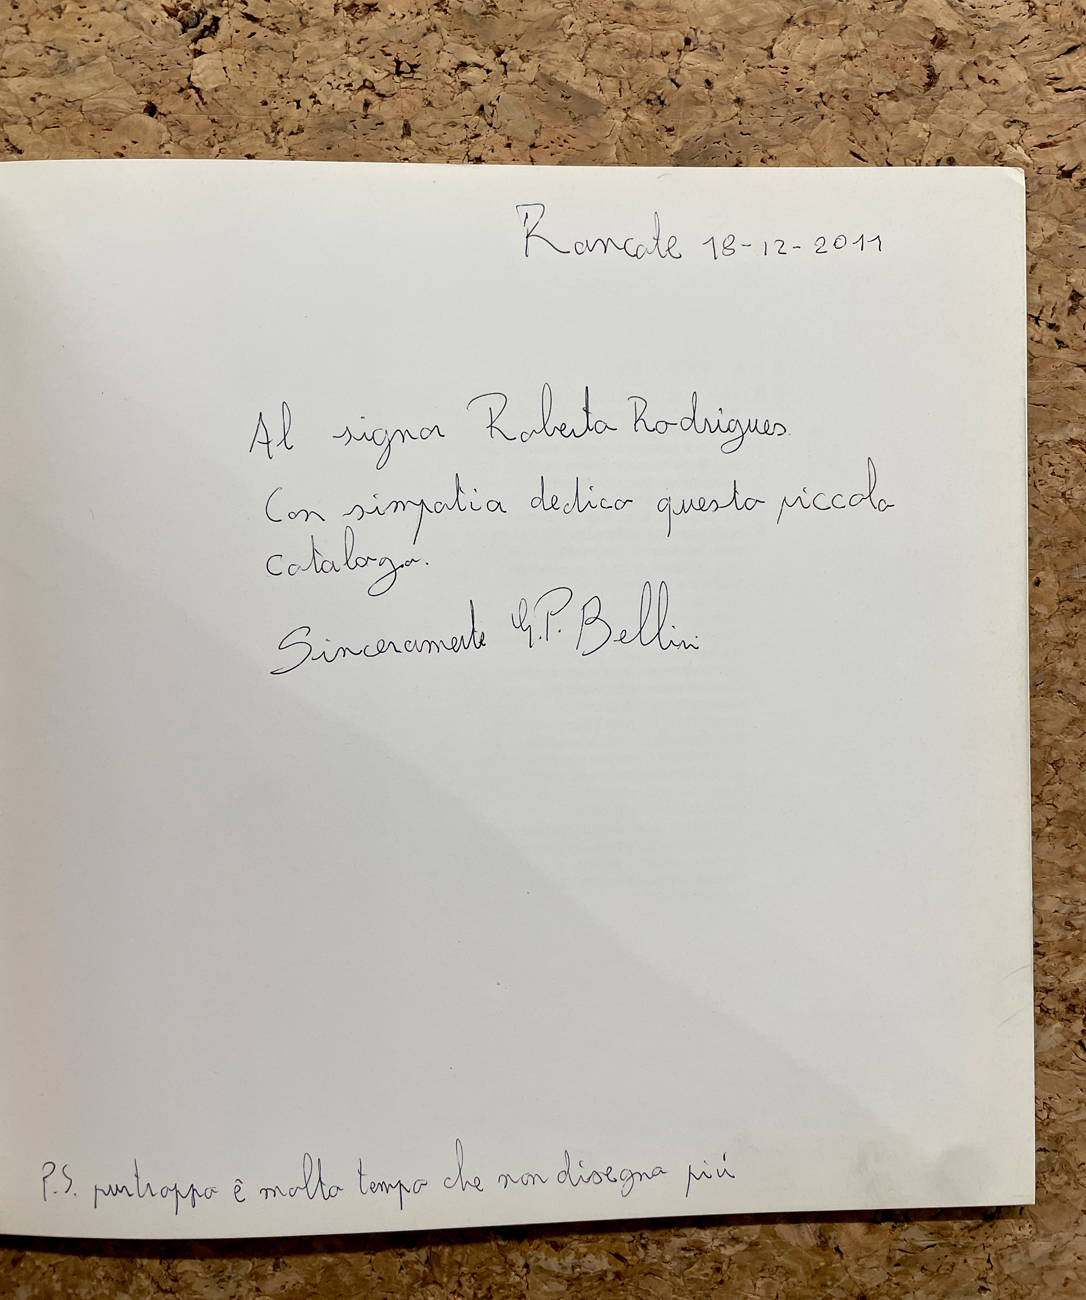 Rancate 18-12-2011
Al signor Roberto Rodrigues
Con simpatia dedico questo piccolo
catalogo.
Sinceramente G.P. Bellini
P.S. purtroppo è molto tempo che non disegno più